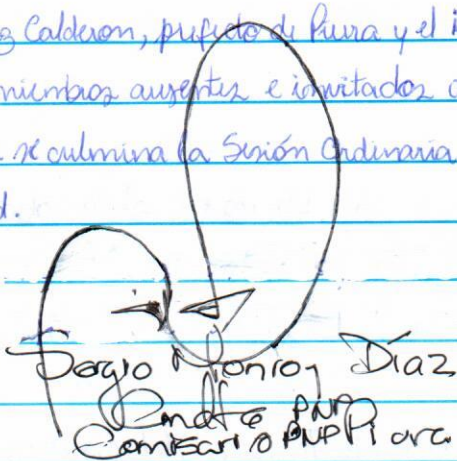 Calderon, prefecto de Piura y el
miembros ausentes e invitados
se culmina la Sesión Ordinaria
d.
Sergio Monroy Díaz
Cmdte PNP
Comisario PNP Piura